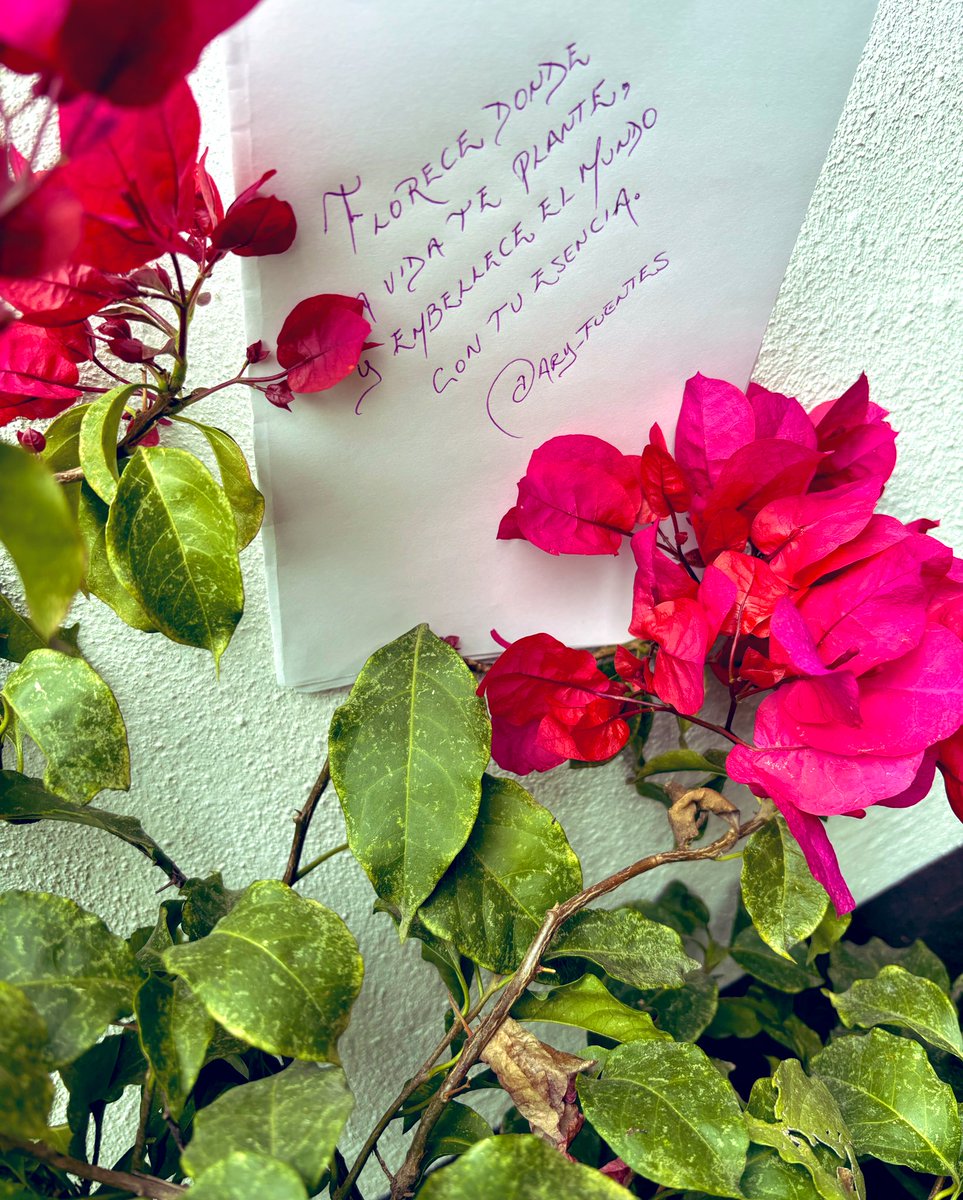 FLORECE DONDE
A VIDA TE PLANTE,
Y EMBELLECE EL MUNDO
CON TU ESENCIA.
@ARY_FUENTES